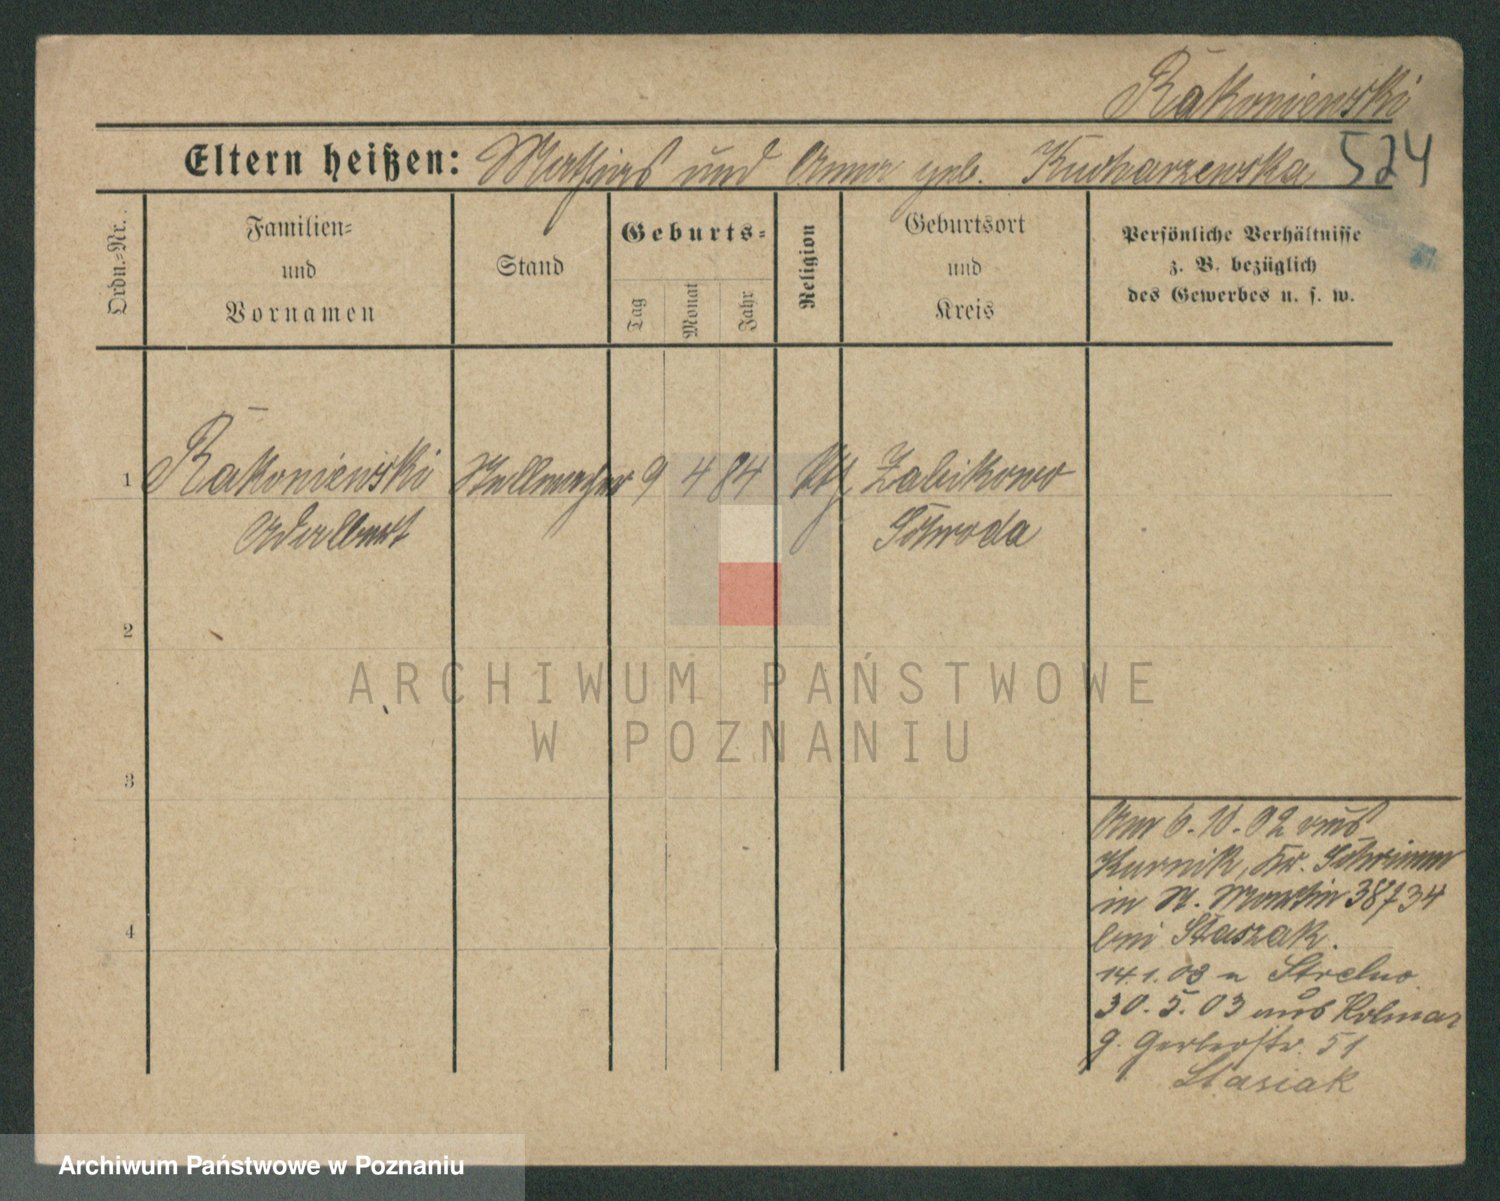 Rakoniewski
Eltern heißen: Mathias und Anna geb. Kucharzewska
524
Ordn.-Nr.
Familien-
und
Vornamen
Stand
Geburts-
Tag
Monat
Jahr
Religion
Geburtsort
und
Kreis
Persönliche Verhältnisse
z. B. bezüglich
des Gewerbes u. s. w.
1 Rakoniewski Stellmacher 9 4 84 kth Zabikowo
Adalbert Schroda
2
3
4
Am 6.10.02 aus
Kurnik, Kr. Schrimm
in St. Martin 38 34
bei Staszak.
14.1.03 n Strelno
30.5.03 aus Kolmar
g. Gerberstr. 51
Stasiak
ARCHIWUM PAŃSTWOWE
W POZNANIU
Archiwum Państwowe w Poznaniu